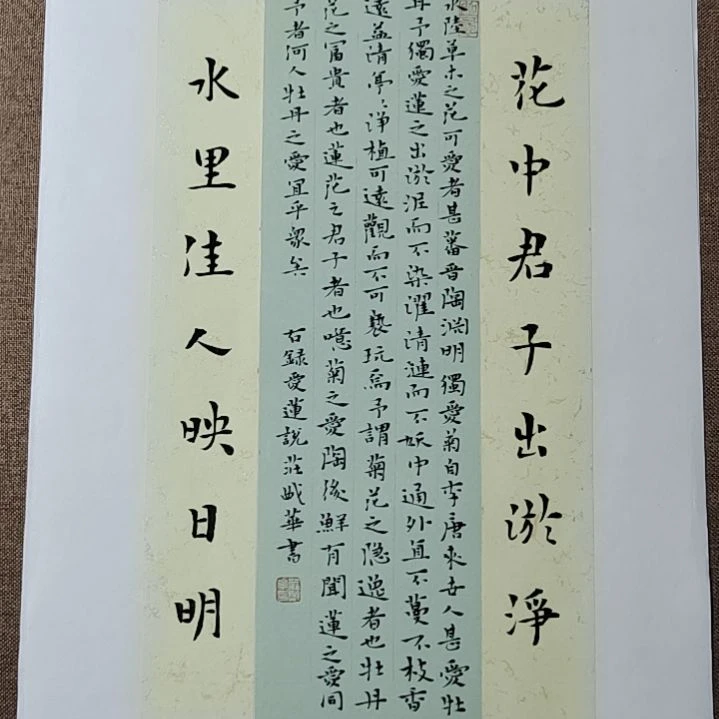 花中君子出淤淨
水陸草木之花可愛者甚蕃晋陶渊明獨愛菊自李唐來世人甚愛牡
丹予獨愛蓮之出淤泥而不染濯清漣而不妖中通外直不蔓不枝香
遠益清亭々淨植可遠觀而不可褻玩焉予謂菊花之隐逸者也牡丹
花之富貴者也蓮花之君子者也噫菊之愛陶後鮮有聞蓮之愛同
予者何人牡丹之愛宜乎衆矣 右録愛蓮說莊華書
水里佳人映日明